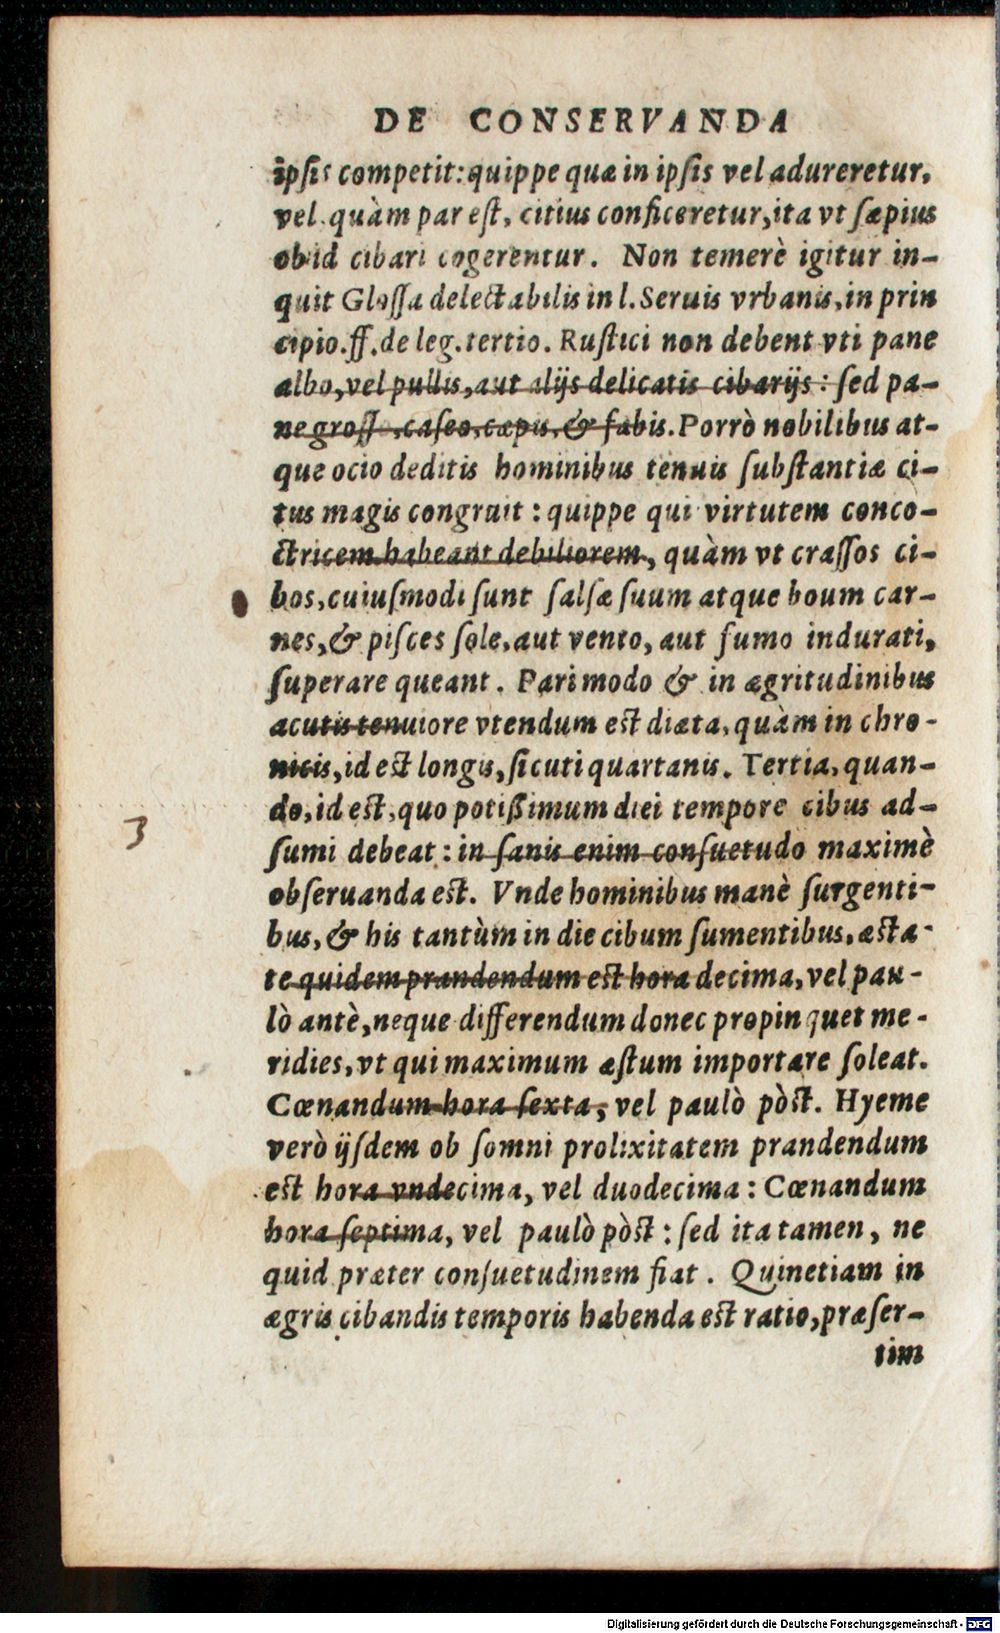 DE CONSERVANDA
ipsis competit: quippe quæ in ipſis vel adureretur,
vel quàm par eſt, citius conficeretur, ita vt ſæpius
ob id cibari cogerentur. Non temerè igitur in-
quit Gloſſa delectabilis in l. Seruis vrbanis, in prin
cipio. ff. de leg. tertio. Ruſtici non debent vti pane
albo, vel pullis, aut alijs delicatis cibarijs: ſed pa-
ne groſſo, caſeo, cæpis, & fabis. Porrò nobilibus at-
que ocio deditis hominibus tenuis ſubſtantiæ ci-
tus magis congruit: quippe qui virtutem conco-
ctricem habeant debiliorem, quàm vt craſſos ci-
bos, cuiuſmodi ſunt ſalſæ ſuum atque boum car-
nes, & piſces ſole, aut vento, aut fumo indurati,
ſuperare queant. Pari modo & in ægritudinibus
acutis tenuiore vtendum eſt diæta, quàm in chro-
nicis, id eſt longis, ſicuti quartanis. Tertia, quan-
do, id eſt, quo potißimum diei tempore cibus ad-
3
ſumi debeat: in ſanis enim conſuetudo maximè
obſeruanda eſt. Vnde hominibus manè ſurgenti-
bus, & his tantùm in die cibum ſumentibus, æſta-
te quidem prandendum eſt hora decima, vel pau-
lò antè, neque differendum donec propinquet me-
ridies, vt qui maximum æſtum importare ſoleat.
Cœnandum hora ſexta, vel paulò pòſt. Hyeme
verò ijſdem ob ſomni prolixitatem prandendum
eſt hora vndecima, vel duodecima: Cœnandum
hora ſeptima, vel paulò pòſt: ſed ita tamen, ne
quid præter conſuetudinem fiat. Quinetiam in
ægris cibandis temporis habenda eſt ratio, præſer-
tim
Digitalisierung gefördert durch die Deutsche Forschungsgemeinschaft - DFG